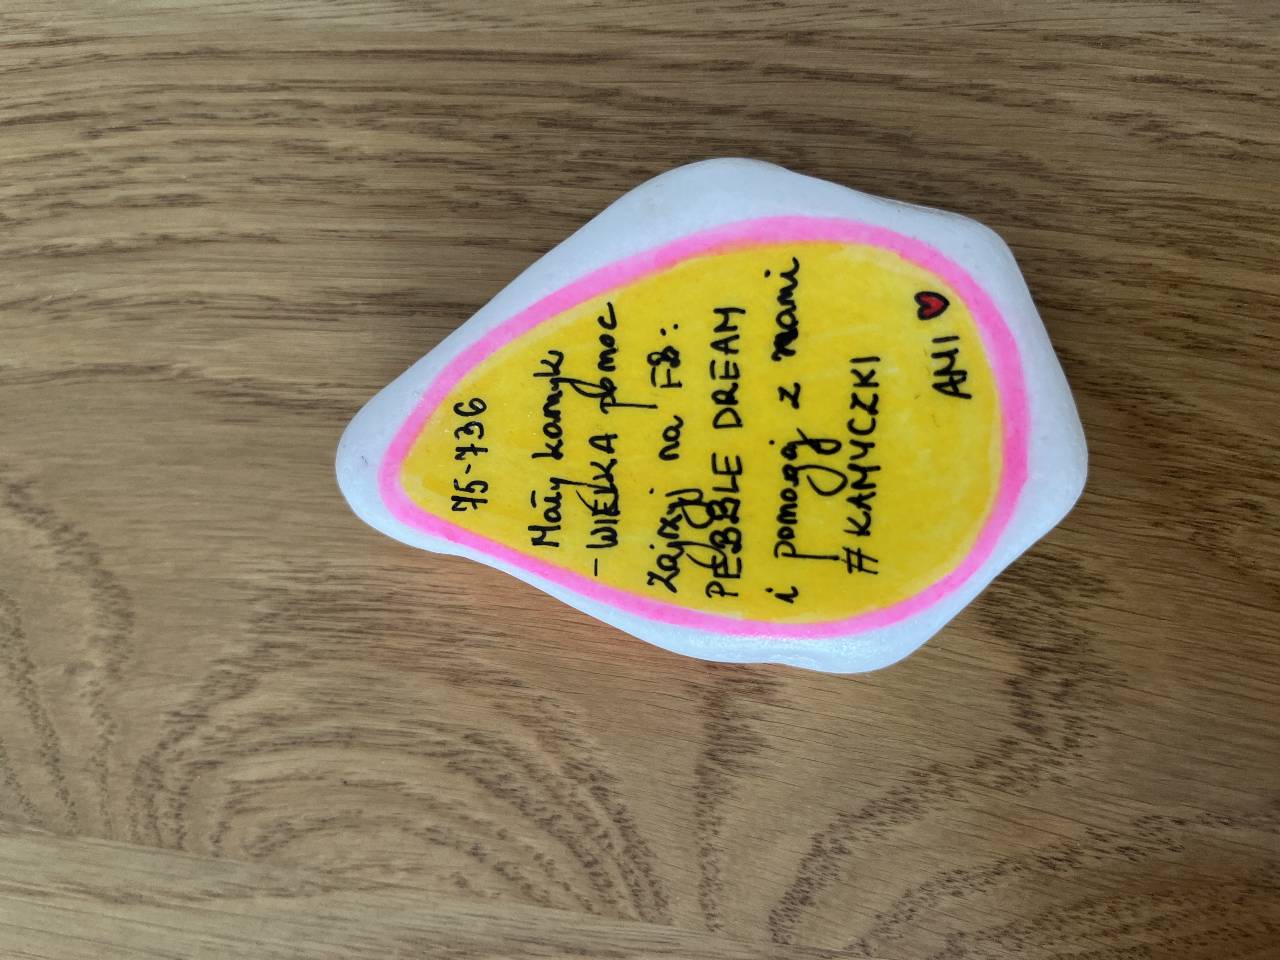 75-736
Mały kamyk
- WIELKA pomoc
zajrzyj na FB:
PEBBLE DREAM
i pomagaj z nami
#KAMYCZKI
AMI